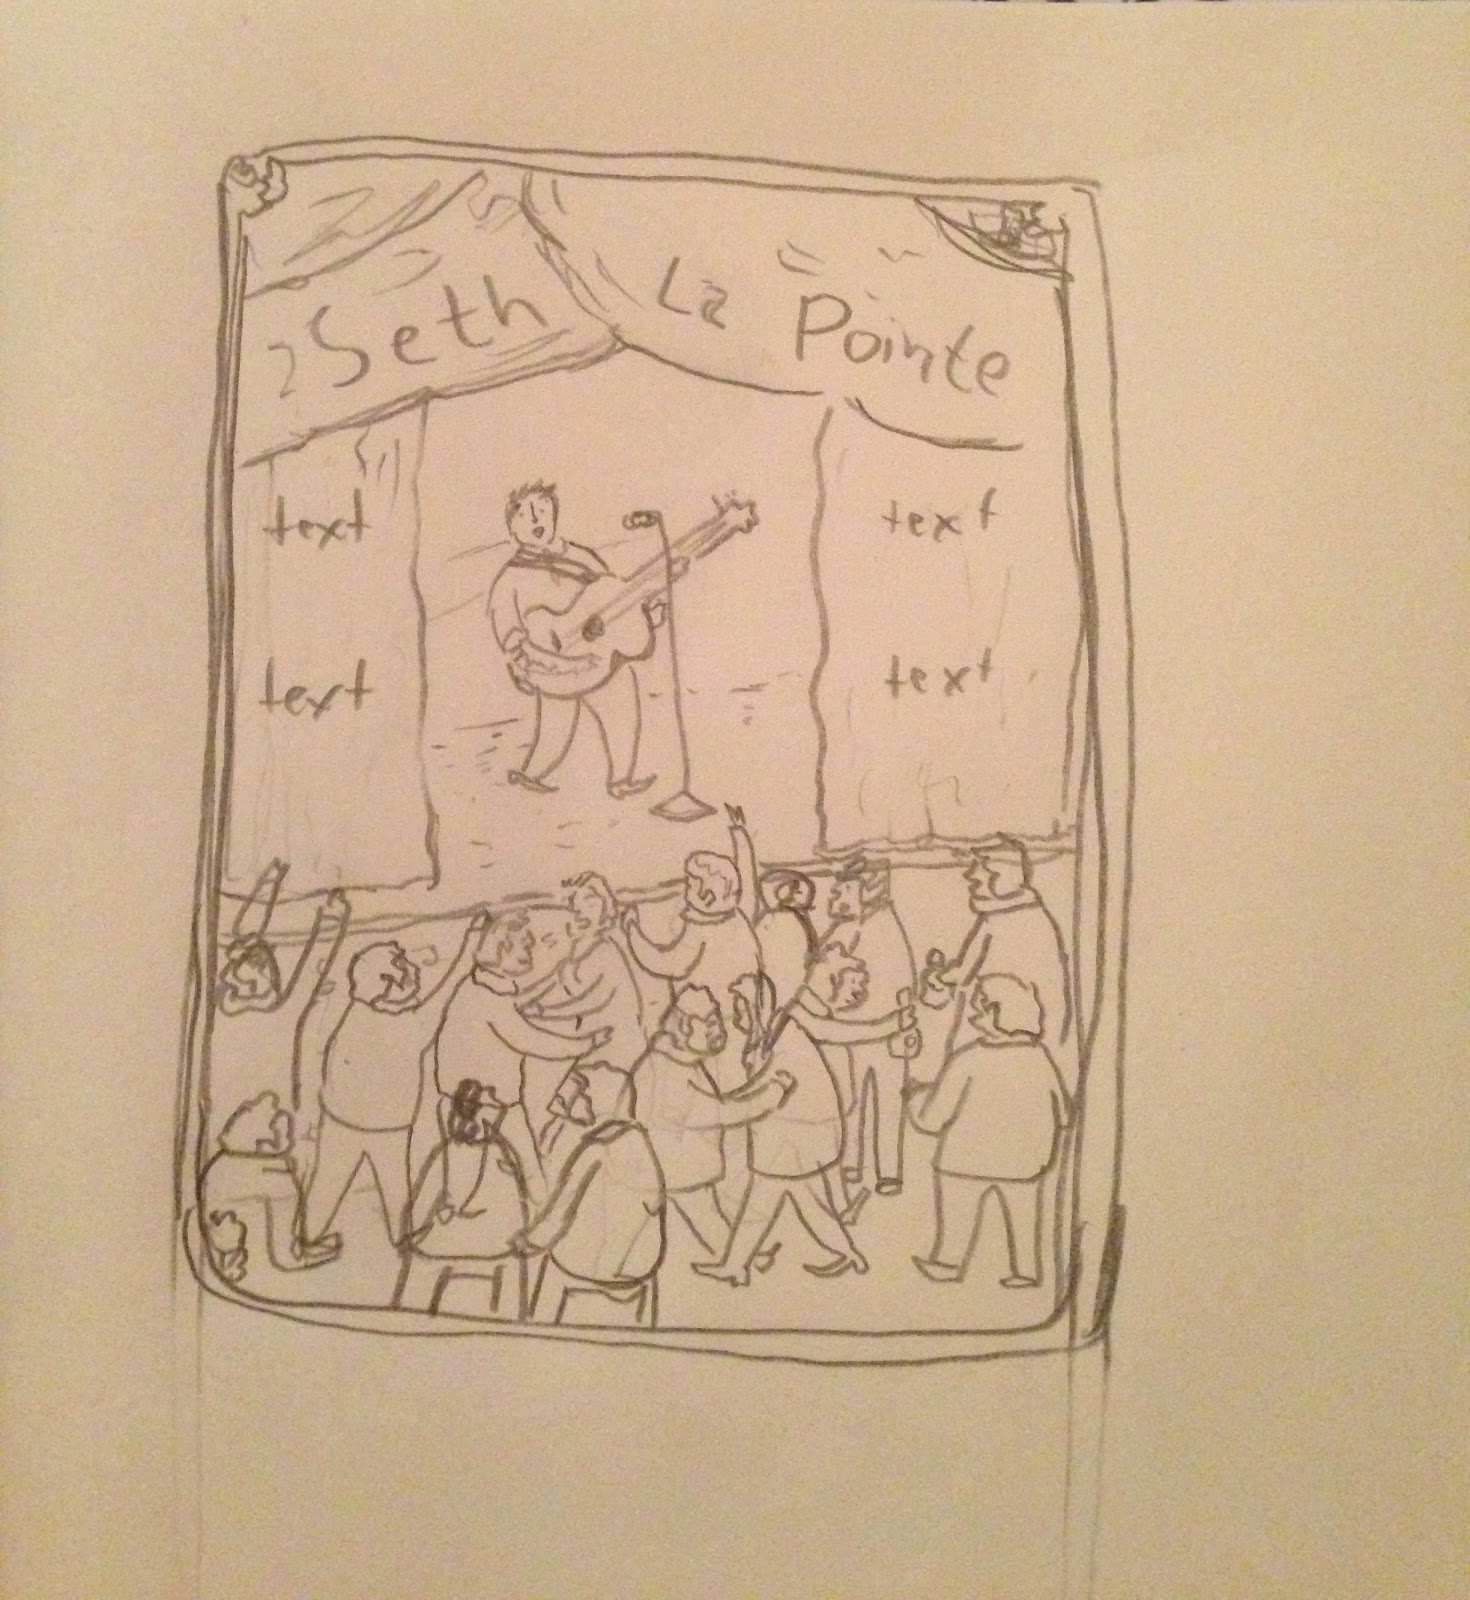 Seth La Pointe
text text
text text